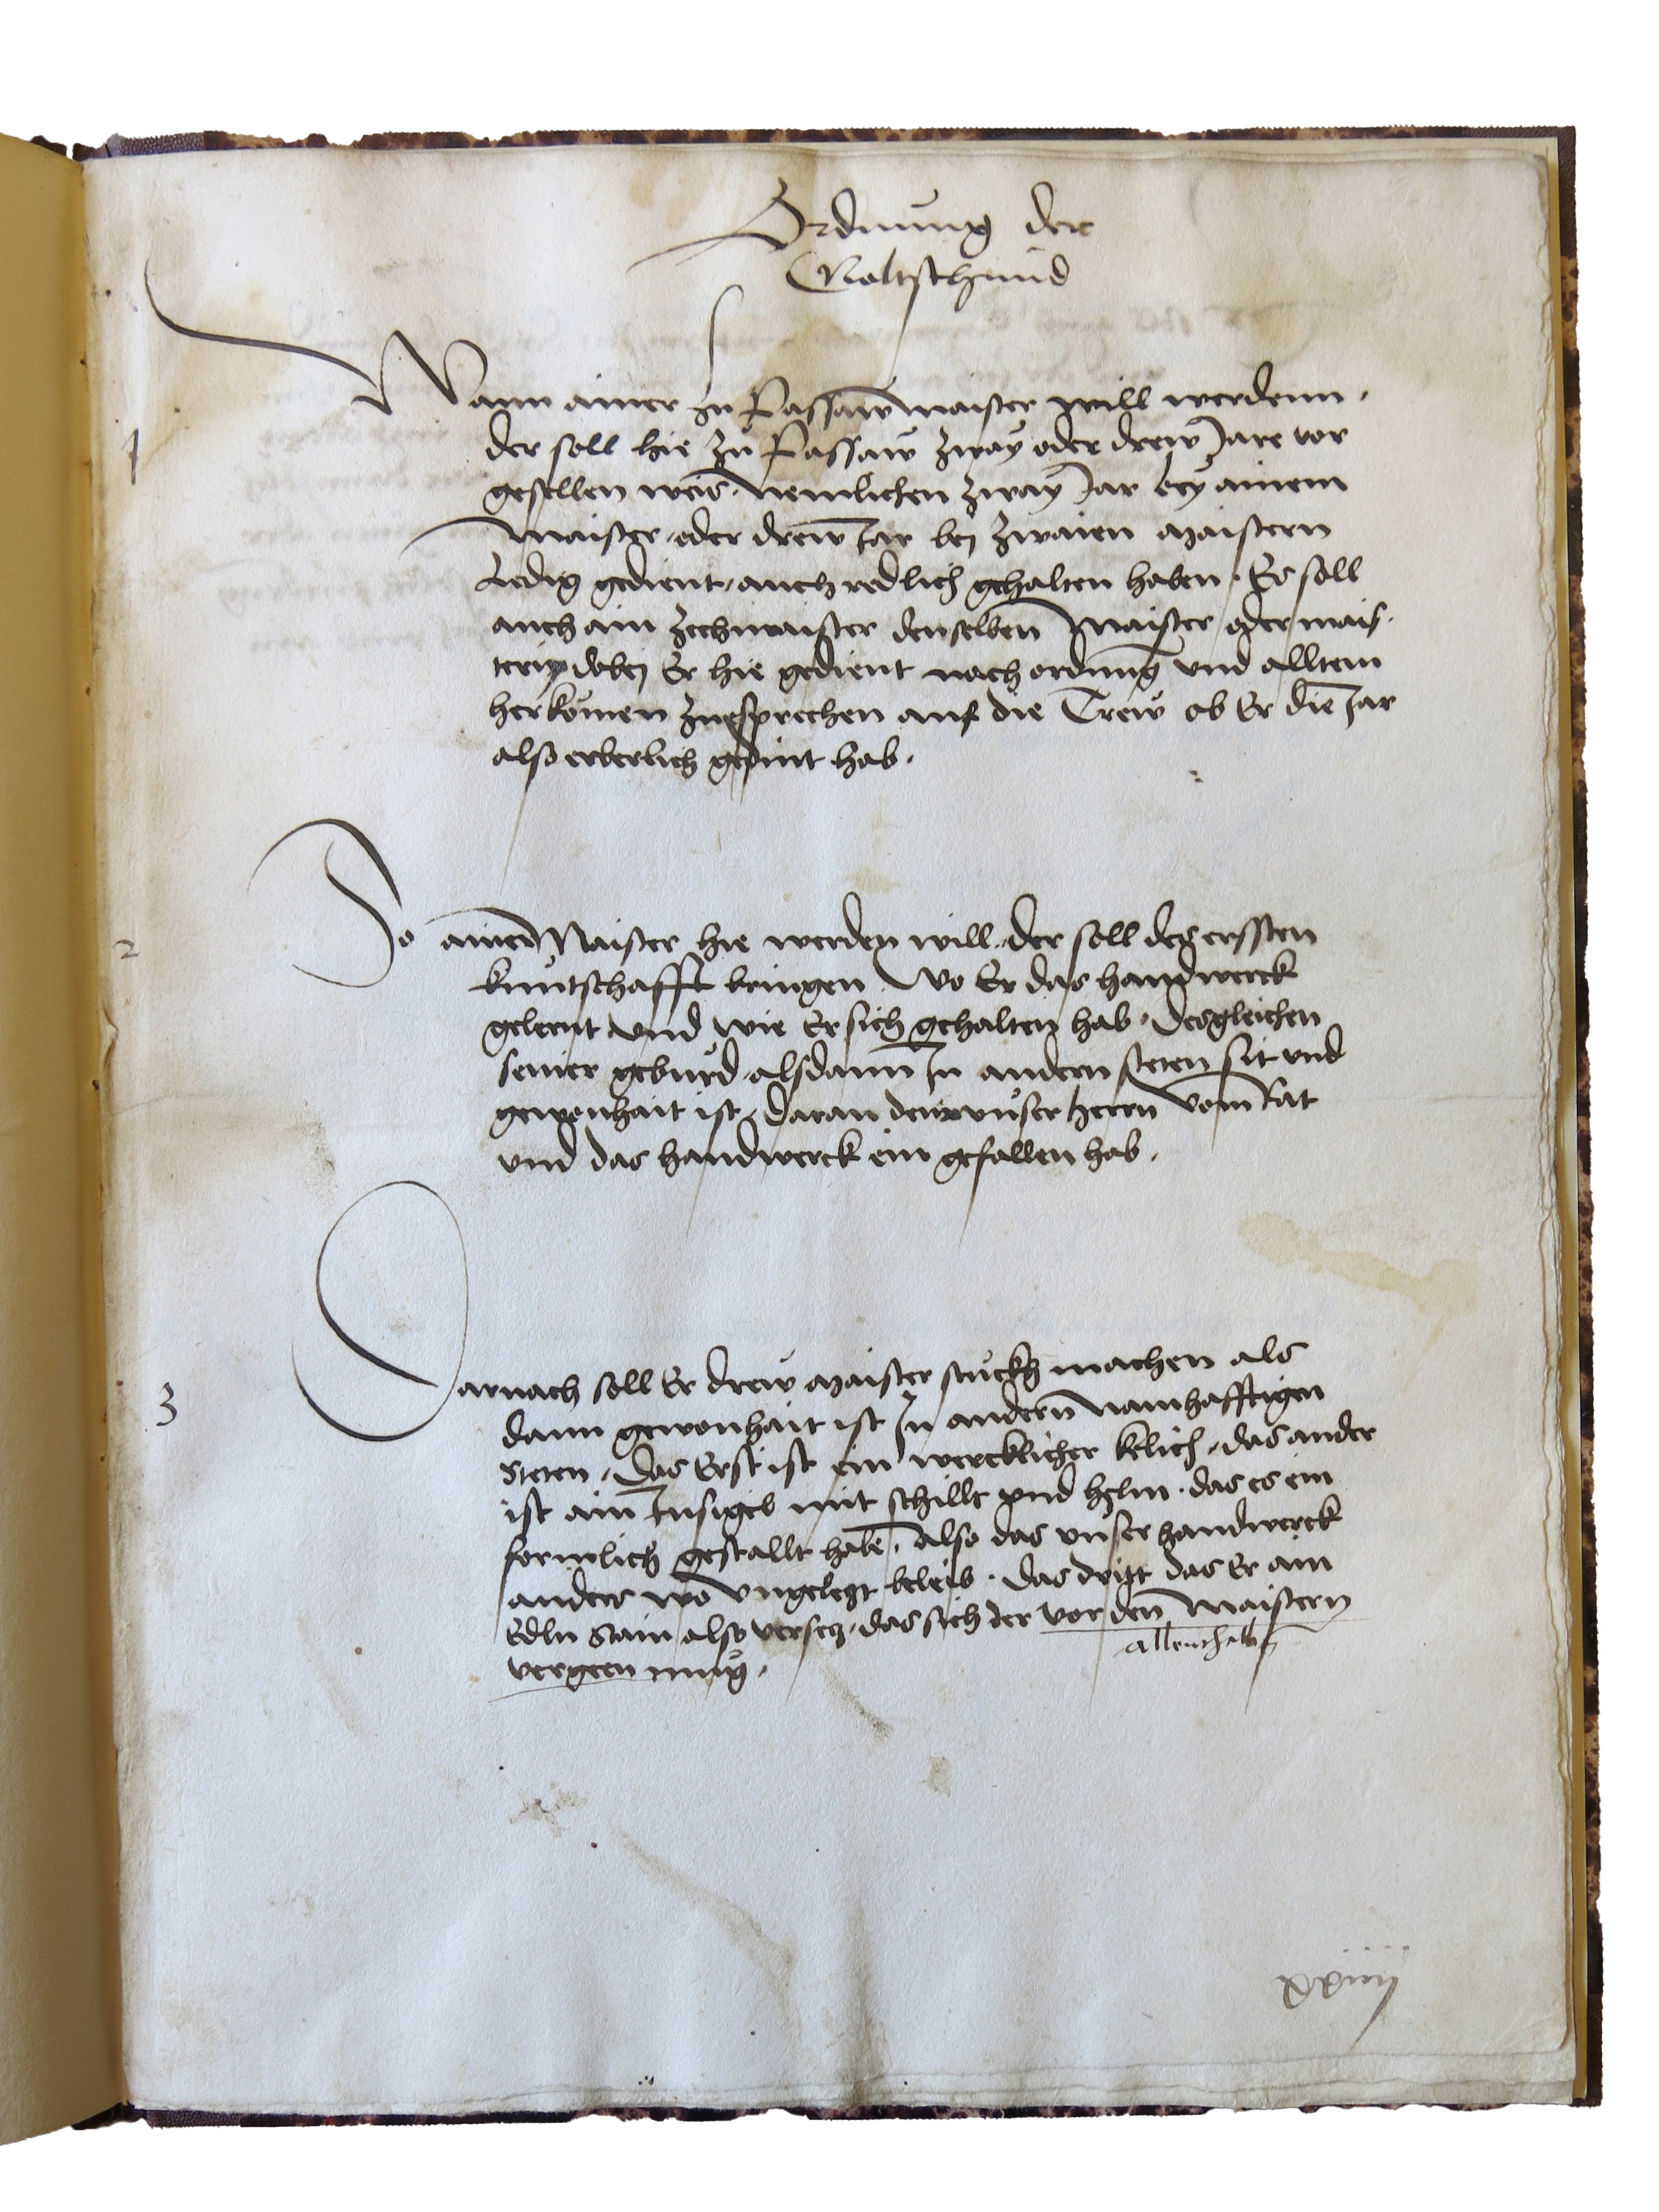 Ordnung der
Goltschmid
1
Wann ainer zu Passaw maister will werdenn ·
der soll hie zu Passaw zway oder drew Jare vor
gesellen weis · nemlichen zway Jar bey ainem
Maister · oder drew Jar bej zwaien maistern
Ledig gedient · auch redlich gehalten haben · Es soll
auch ain zechmaister denselben Maister oder mais·
tern dobej Er hie gedient nach ordnung vnd alltem
herkomen zuesprechen auf die Trew ob Er die Jar
also erberlich gedint hab ·
2
So ainer Maister hie werden will · der soll des ersten
kuntschafft bringen Wo Er das handwerck
gelernt Vnd wie Er sich gehalten hab · desgleichen
seiner geburd · alsdann In andern steten sit vnd
gewonhait ist · daran den vnser herrn Vom Rat
vnd das handwerck ein gefallen hab ·
3
Darnach soll Er drew maister stuckh machen als
dann gewonhait ist In andern namhafftigen
Steten · Das Erst ist ein wercklicher kelich · das ander
ist ain Insigel mit schillt vnd helm · das es ein
formlich gestallt habe · also das vnser handwerck
anders wo Vngelezt beleib · das dritt das Er ain
Edln Stain also versetz · das sich der vor den Maistern
allenthalben
vergeen mug ·
xxiiij